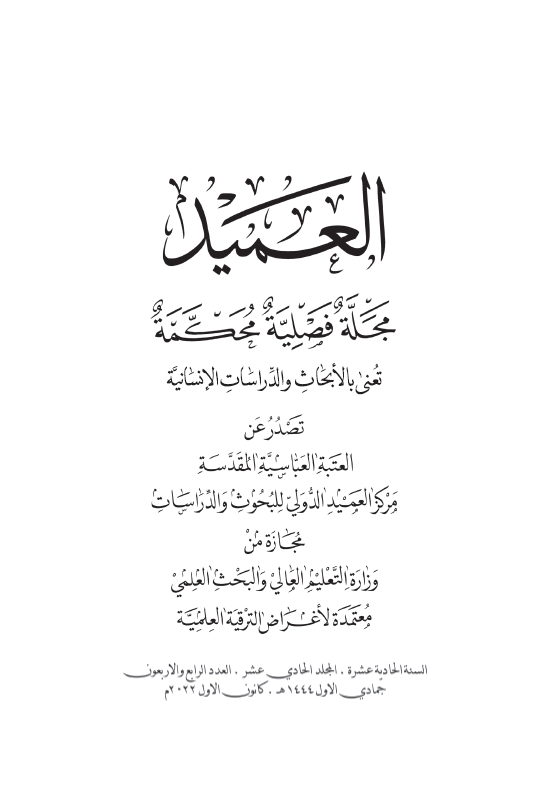 العميد
مَجَلَّةٌ فَصْلِيَّةٌ مُحَكَّمَةٌ
تُعنىٰ بالأبحَاثِ والدِّراسَاتِ الإنسَانيَّة
تَصْدُرُ عَن
العَتَبَةِ العَبَّاسِيَّةِ المُقَدَّسَةِ
مَرْكَزِ العَمِيْدِ الدُّوَلِيّ لِلْبُحُوْثِ وَالدِّرَاسَاتِ
مُجَازَة مِنْ
وَزَارَةِ التَّعْلِيْمِ العَالِيْ وَالبَحْثِ العِلْمِيْ
مُعْتَمَدَة لأغْرَاضِ التَرْقِيَةِ العِلمِيَّة
السنة الحادية عشرة . المجلد الحادي عشر . العدد الرابع والاربعون
جمادي الاول ١٤٤٤هـ . كانون الاول ٢٠٢٢م